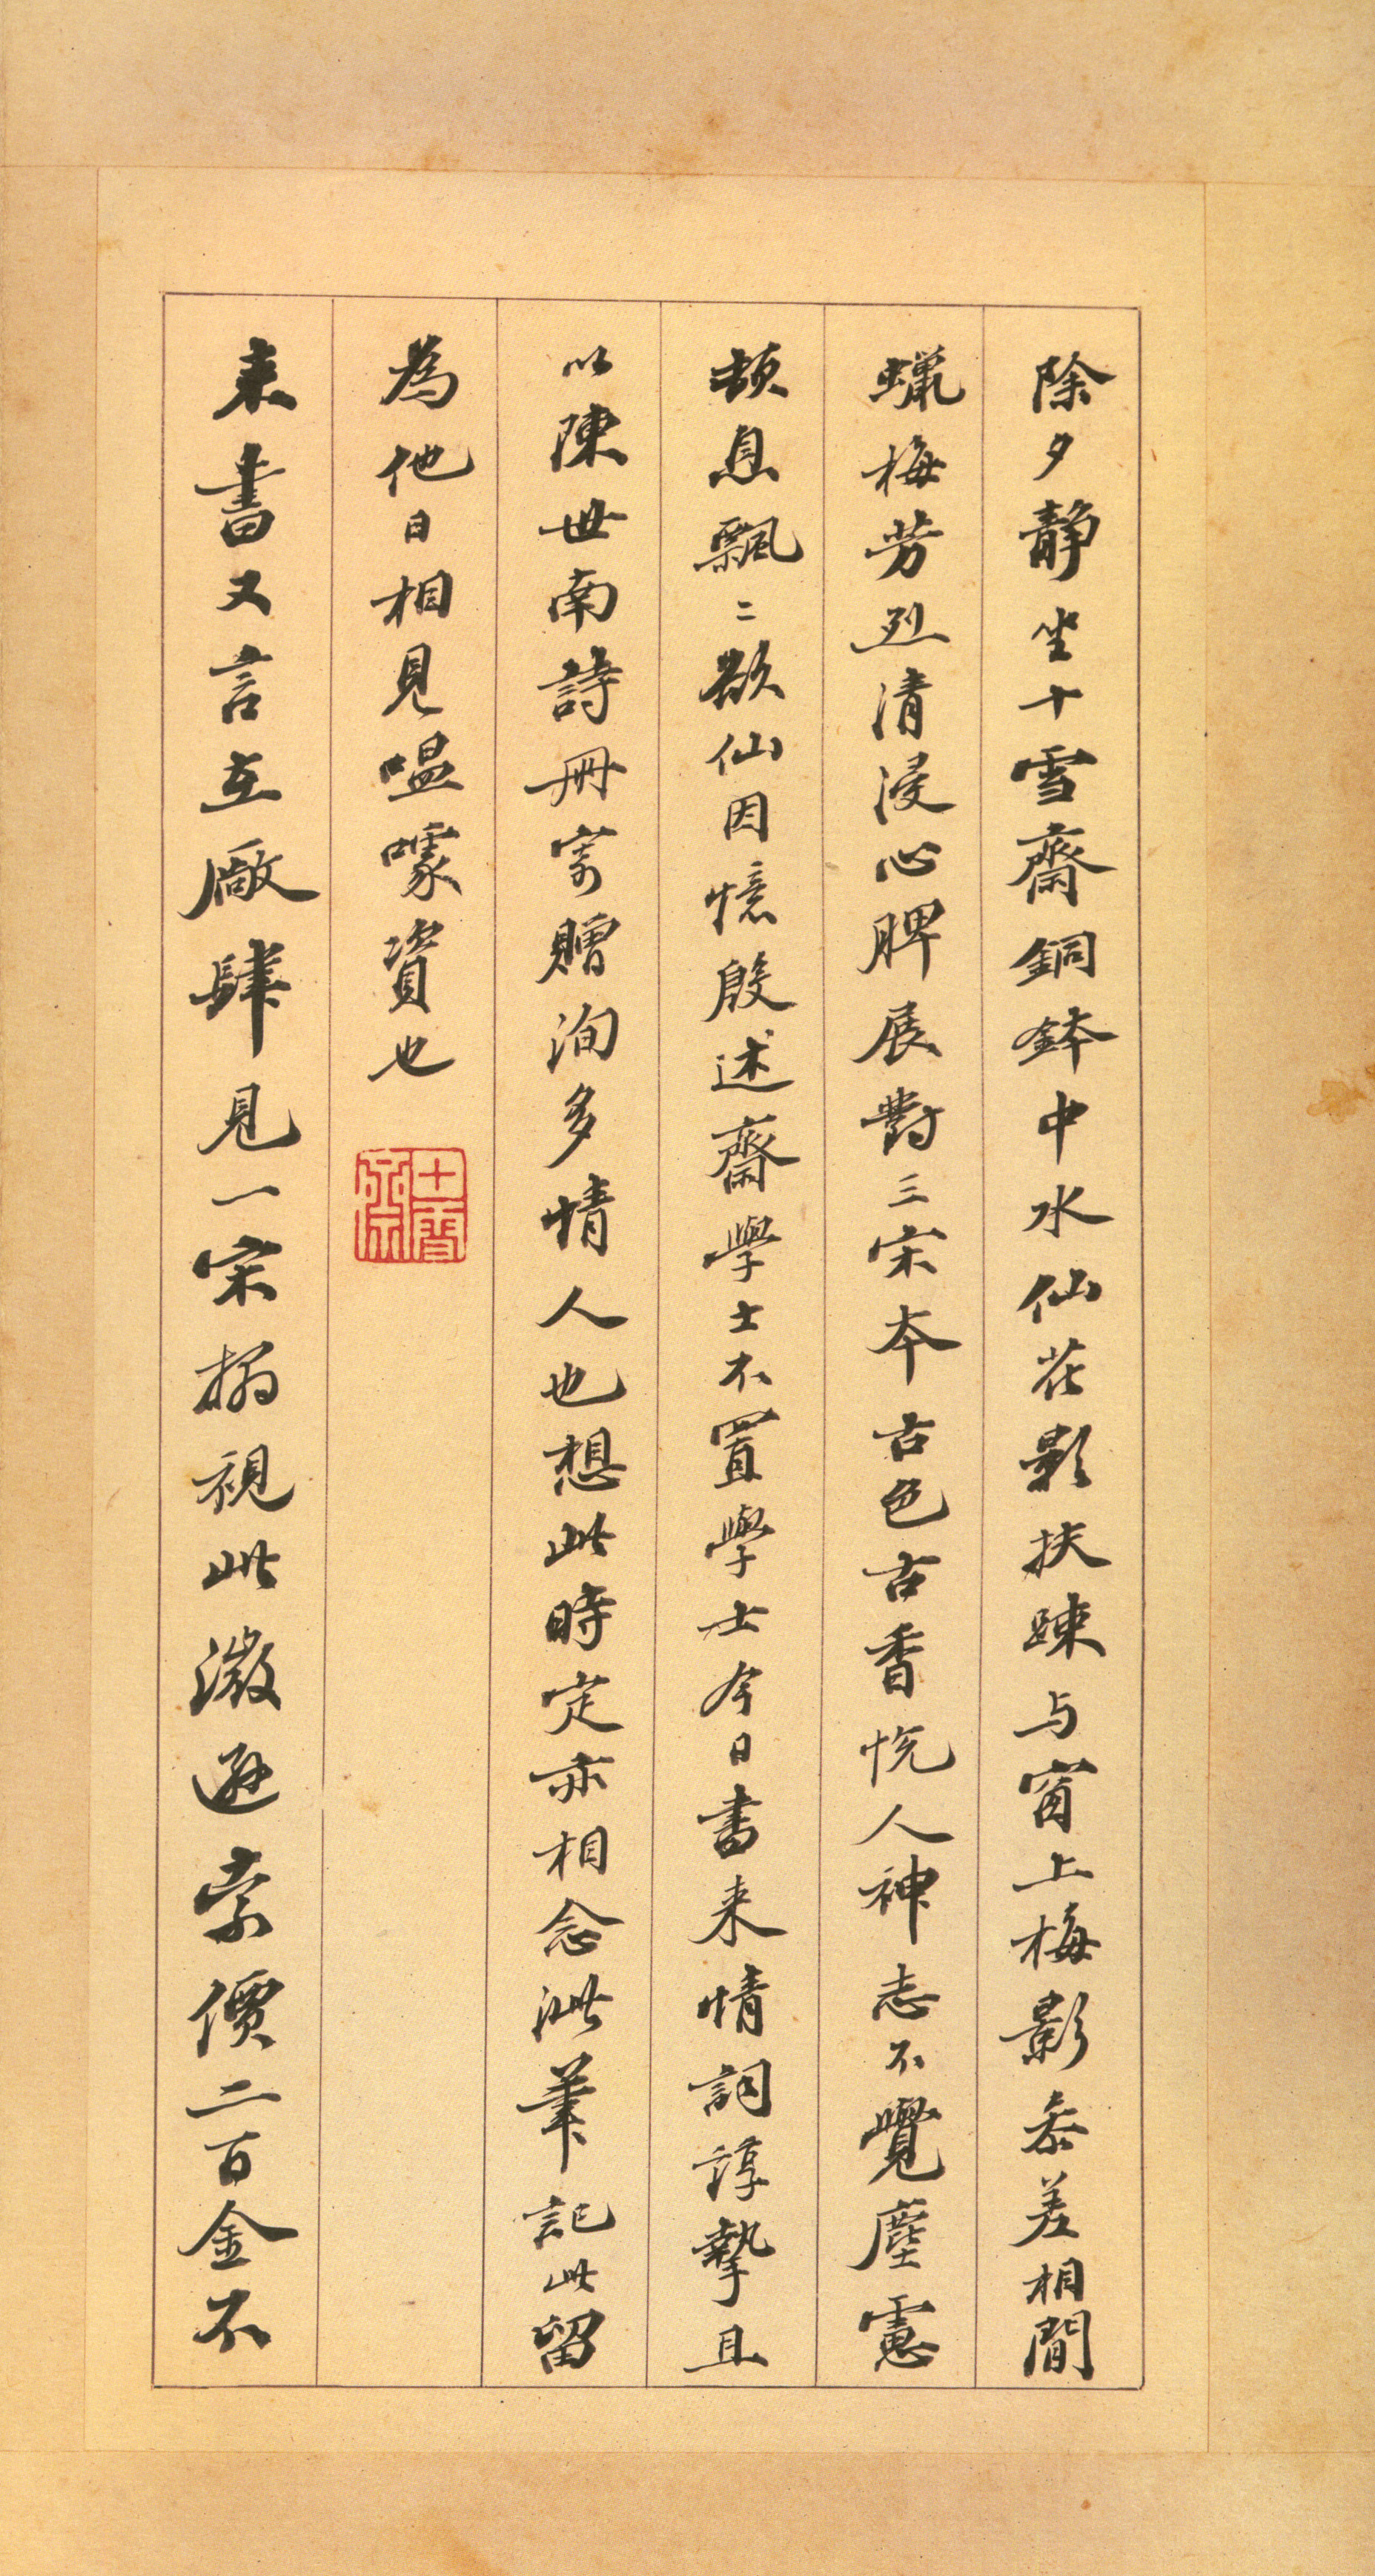 除夕靜坐十雪齋銅鉢中水仙花影扶踈与窗上梅影参差相間
蠟梅芳烈清浸心脾展對三宋本古色古香恍人神志不覺塵慮
頓息飄二欲仙因憶殷述齋學士不置學士今日書来情詞諄摯且
以陳世南詩冊寄贈洵多情人也想此時定亦相念泚筆記此留
為他日相見嗢噱資也
十雪齋
来書又言在廠肆見一宋搨視此微遜索價二百金不